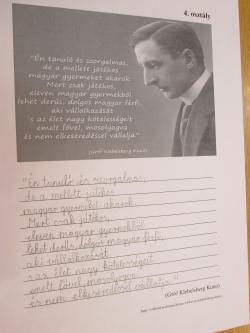 4. osztály
"Én tanuló és szorgalmas,
de a mellett játékos
magyar gyermeket akarok.
Mert csak játékos,
eleven magyar gyermekből
lehet derűs, dolgos magyar férfi,
aki vállalkozását
s az élet nagy kötelességeit
emelt fővel, mosolyogva
és nem elkeseredéssel vállalja."
(Gróf Klebelsberg Kunó)
"Én tanuló és szorgalmas,
de a mellett játékos
magyar gyermeket akarok.
Mert csak játékos,
eleven magyar gyermekből
lehet derűs, dolgos magyar férfi,
aki vállalkozását
s az élet nagy kötelességeit
emelt fővel, mosolyogva
és nem elkeseredéssel vállalja."
(Gróf Klebelsberg Kuno)